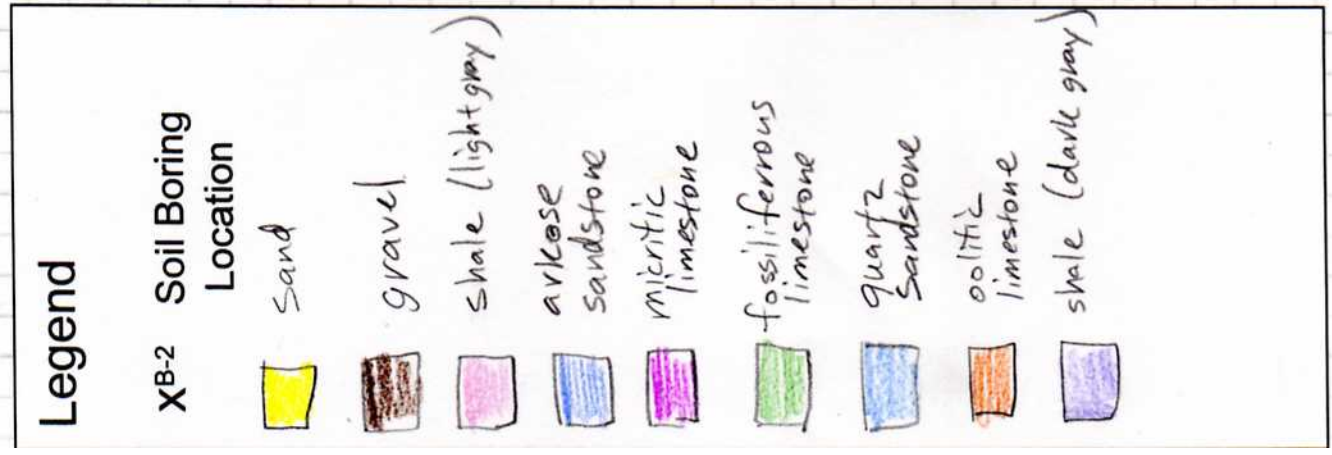 Legend
X B-2 Soil Boring
Location
Sand
gravel
shale (light gray)
arkose
sandstone
micritic
limestone
fossiliferrous
limestone
quartz
Sandstone
oolitic
limestone
shale (dark gray)